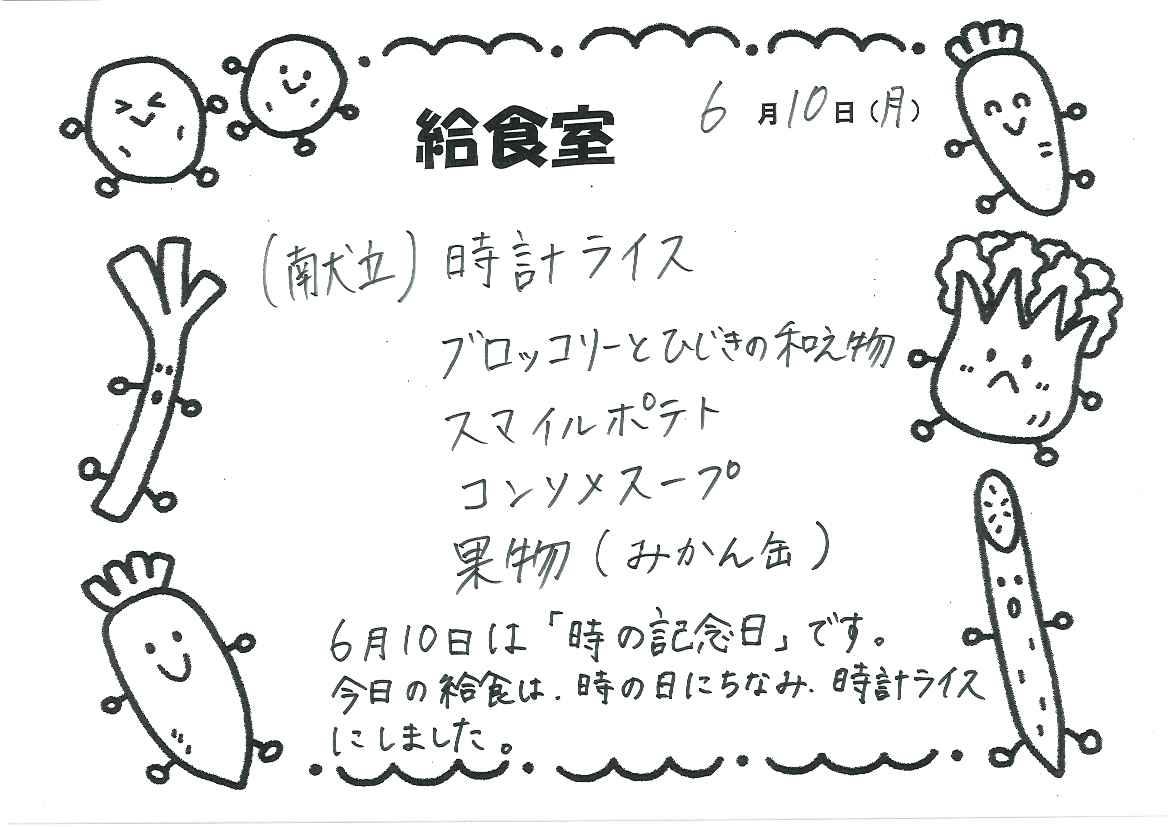 給食室
6月10日(月)
(献立) 時計ライス
ブロッコリーとひじきの和え物
スマイルポテト
コンソメスープ
果物(みかん缶)
6月10日は「時の記念日」です。
今日の給食は、時の日にちなみ、時計ライス
にしました。